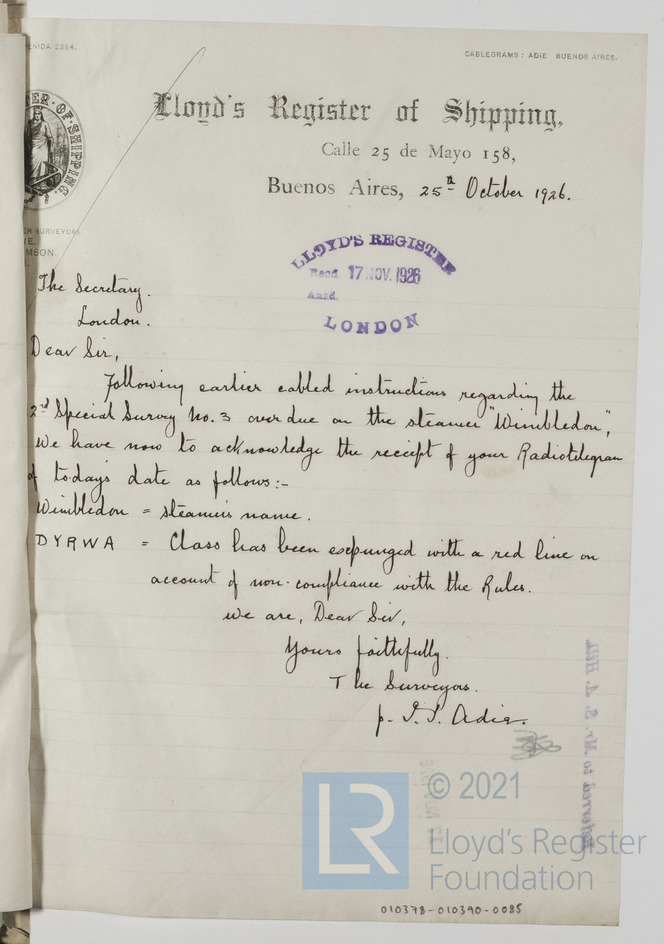 ENIDA 2364.
CABLEGRAMS: ADIE BUENOS AIRES.
Lloyd's Register of Shipping,
Calle 25 de Mayo 158,
Buenos Aires, 25th October 1926.
ER·OF·SHIPPING.
ER SURVEYORS
IE.
MSON.
LLOYD'S REGISTER
Recd. 17 NOV. 1926
Ansd.
LONDON
The Secretary.
London.
Dear Sir,
Following earlier cabled instructions regarding the
2nd Special Survey No. 3 overdue on the steamer "Wimbledon",
we have now to acknowledge the receipt of your Radiotelegram
of today's date as follows:-
Wimbledon = steamer's name.
DYRWA = Class has been expunged with a red line on
account of non-compliance with the Rules.
We are, Dear Sir,
Yours faithfully.
The Surveyors.
p. Adie.
Referred to Mr. S. Hill
© 2021
LR Lloyd's Register
Foundation
010378-010390-0085